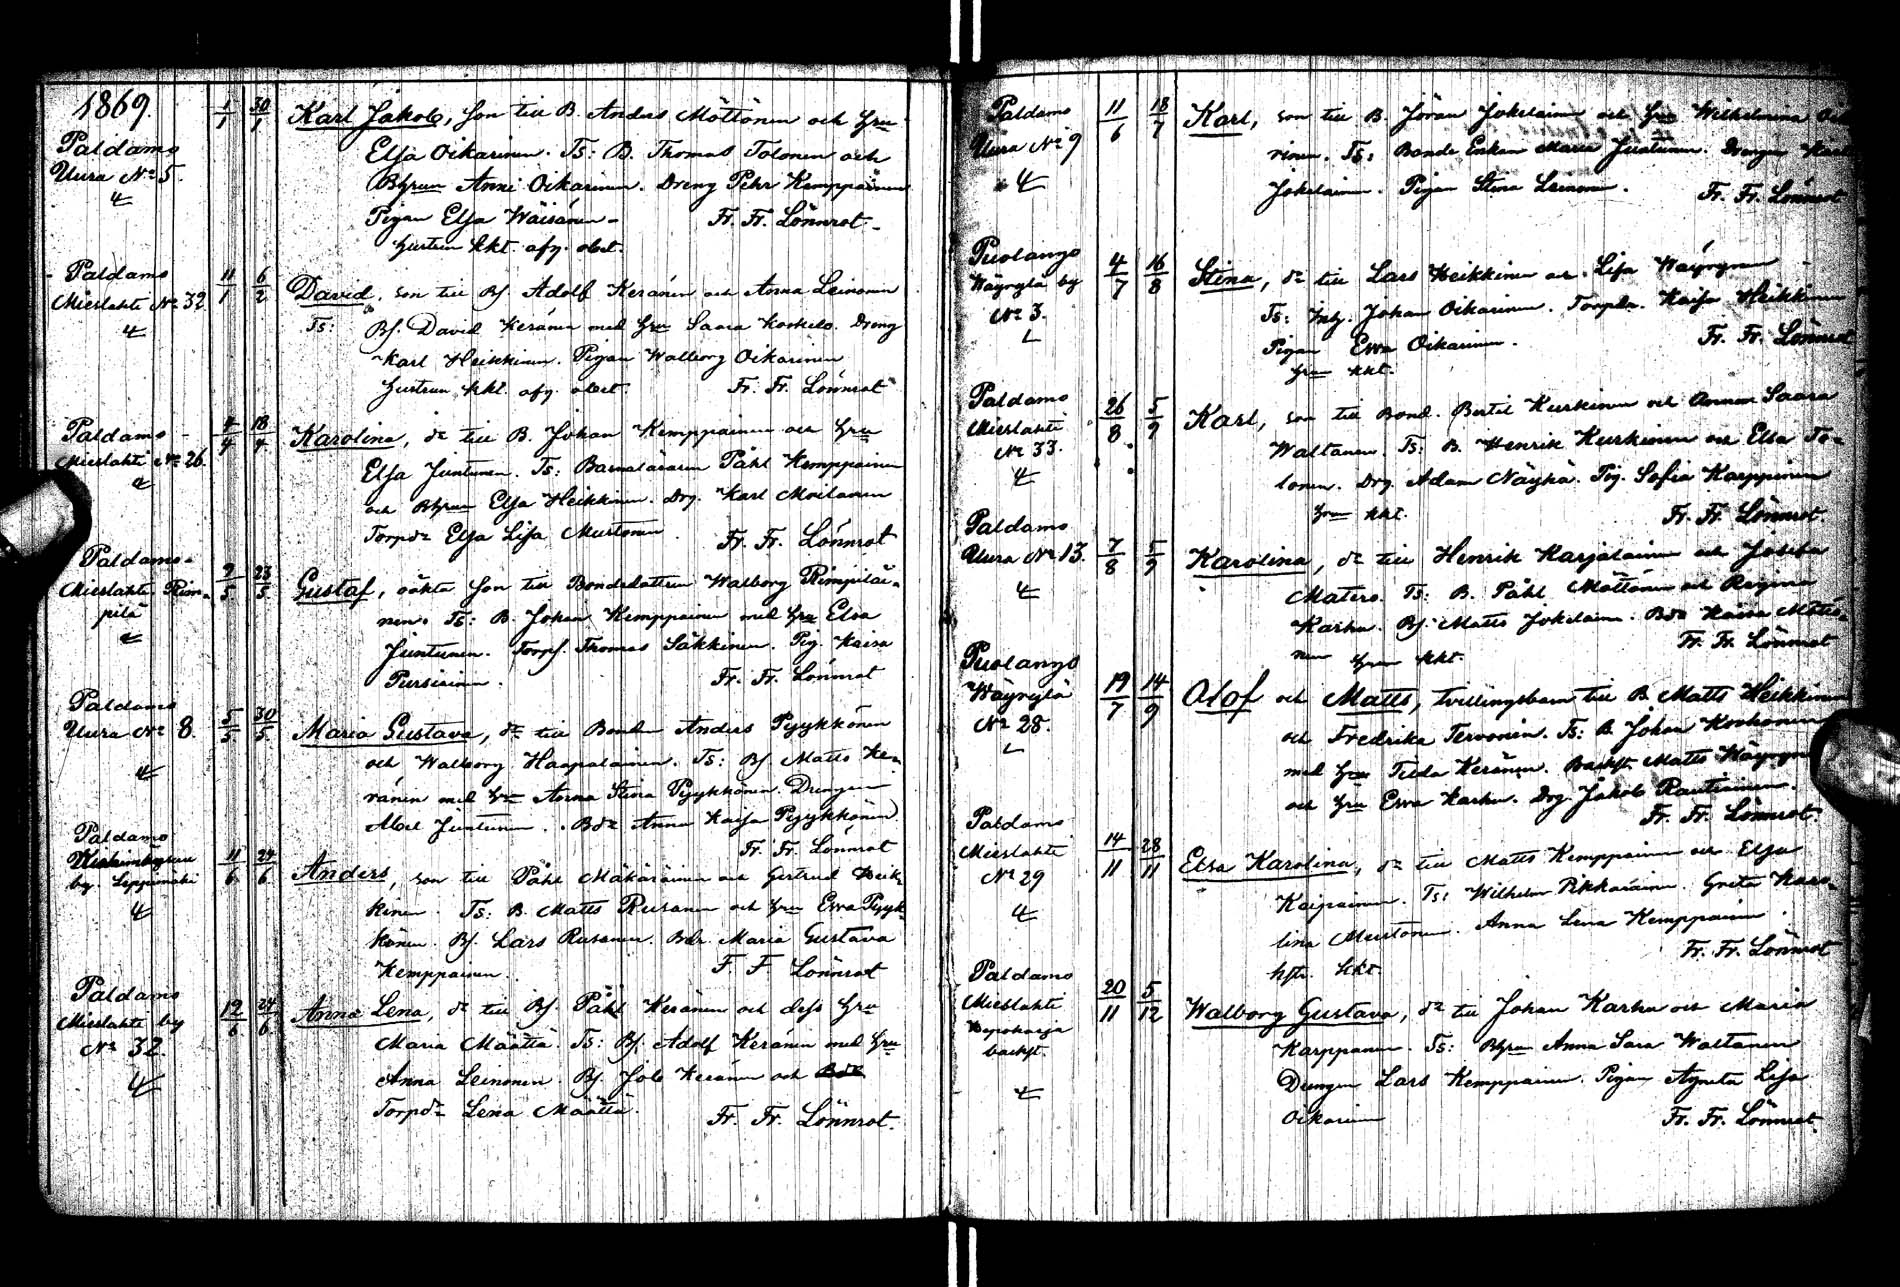 1869.
Paldamo
Uura No 5.
4
1/1 30/1 Karl Jakob, son till B. Anders Möttönen och Hru
Elsa Oikarinen. Ts: B. Thomas Tolonen och
Bhrun Anni Oikarinen. Dreng Pehr Kemppainen
Pigan Elsa Wäisänen - Fr. Fr. Lönnrot -
Hustrun kkt. afg. abset.
Paldamo
Mieslahti No 32
4
11/1 6/2 David, son till Bf. Adolf Keränen och Anna Leinonen
Ts: Bf. David Keränen med Hru Saara Korkelo. Dreng
Karl Heikkinen. Pigan Walborg Oikarinen
Hustrun kkt. afg. abset. Fr. Fr. Lönnrot
Paldamo
Mieslahti No 26.
4/4 18/4 Karolina, dr till B. Johan Kemppainen och Hru
Elsa Juntunen. Ts: Barnaläraren Påhl Kemppainen
och Bhrun Elsa Heikkinen. Drg. Karl Moilanen
Torpdr Elsa Lisa Mustonen. Fr. Fr. Lönnrot
Paldamo
Mieslahti Rim-
pilä
9/5 23/5 Gustaf, oäkta son till Bondedottren Walborg Rimpiläi-
nen. Ts: B. Johan Kemppainen med Hru Elsa
Juntunen. Torpf. Thomas Säkkinen. Pig. Kaisa
Pursiainen. Fr. Fr. Lönnrot
Paldamo
Uura No 8.
4
5/5 30/5 Maria Gustava, dr till Bonden Anders Pyykkönen
och Walborg Haapalainen. Ts: Bf. Matts Ke-
ränen med Hru Anna Stina Pyykkönen. Drengen
Abel Juntunen. Bdr Anna Kaisa Pyykkönen.
Fr. Fr. Lönnrot
Paldamo
by. Leppimäki
4
11/6 24/6 Anders, son till Påhl Mäkäräinen och Gertrud Heik-
kinen. Ts: B. Matts Rusanen och Hru Ewa Pyyk-
könen. Bf. Lars Rusanen. Bdr. Maria Gustava
Kemppainen. F. F Lönnrot
Paldamo
Mieslahti by
No 32.
4
12/6 24/6 Anna Lena, dr till Bf. Påhl Keränen och dess Hru
Maria Määttä. Ts: Bf. Adolf Keränen med Hru
Anna Leinonen. Bf. Job Keränen och
Torpdr Lena Määttä. Fr. Fr. Lönnrot.
Paldamo
Uura No 9
4
11/6 18/7 Karl, son till B. Jöran Jokelainen och Hru Wilhelmina Oik
rinen. Ts: Bonde Enkan Maria Juntunen. Drengen Karl
Jokelainen. Pigan Stina Leinonen. Fr. Fr. Lönnrot
Puolango
Wäyrylä by
No 3.
4/7 16/8 Stina, dr till Lars Heikkinen och Lisa Wäyrynen
Ts: Inh. Johan Oikarinen. Torpdr. Kaisa Heikkinen
Pigan Ewa Oikarinen. Fr. Fr. Lönnrot
Hrun kkt.
Paldamo
Mieslahti
No 33.
4
26/8 5/9 Karl, son till Bond. Bertil Kurkinen och Annan Saara
Waltanen. Ts: B. Henrik Kurkinen och Elsa To-
lonen. Drg. Adam Näykä. Pig. Sofia Karppinen
Hrun kkt. Fr. Fr. Lönnrot.
Paldamo
Uura No 13.
4
7/8 5/9 Karolina, dr till Henrik Karjalainen och Josefa
Matero. Ts: B. Påhl Möttönen och Regina
Karhu. Bf. Matts Jokelainen. Bdr Kaisa Möttö-
nen Hrun kkt. Fr. Fr. Lönnrot
Puolango
Wäyrylä
No 28.
19/7 14/9 Olof och Matts, tvillingsbarn till B. Matts Heikkinen
och Fredrika Tervonen. Ts: B. Johan Korhonen
med Hru Tilda Keränen. Backst. Matts Wäyrynen
och Hru Ewa Karhu. Drg. Jakob Rautiainen.
Fr. Fr. Lönnrot.
Paldamo
Mieslahti
No 29
4
14/11 28/11 Elsa Karolina, dr till Matts Kemppainen och Elsa
Kaipainen. Ts: Wilhelm Pikkarainen. Greta Karo-
lina Mustonen. Anna Lena Kemppainen.
hstr. kkt. Fr. Fr. Lönnrot
Paldamo
Mieslahti
backst.
4
20/11 5/12 Walborg Gustava, dr till Johan Karhu och Maria
Karppanen. Ts: Bhrun Anna Sara Waltanen
Drengen Lars Kemppainen. Pigan Agneta Lisa
Oikarinen Fr. Fr. Lönnrot.